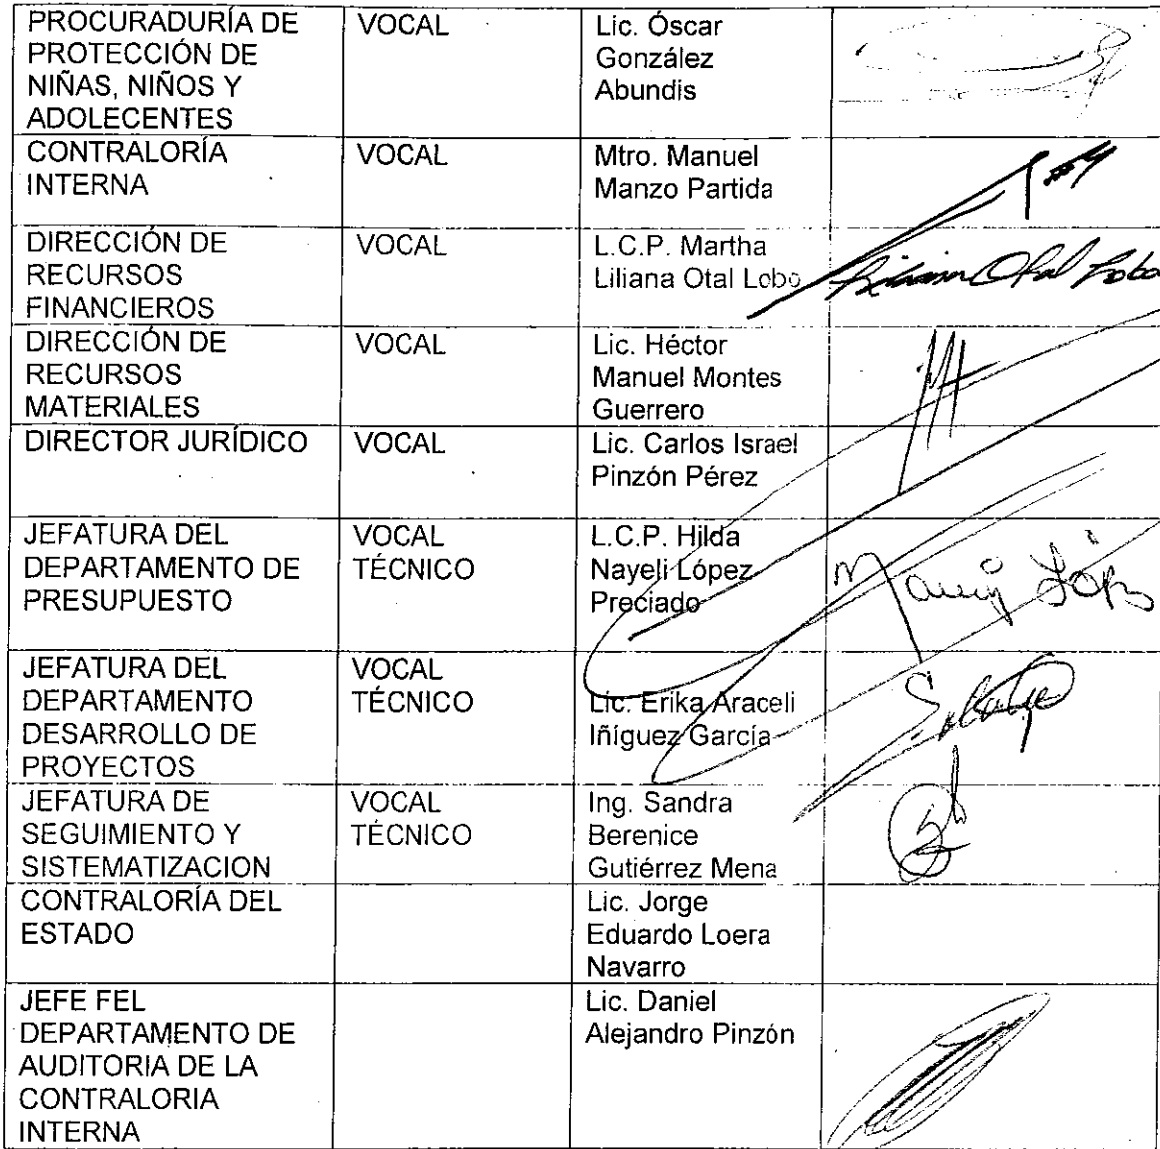 PROCURADURÍA DE
PROTECCIÓN DE
NIÑAS, NIÑOS Y
ADOLECENTES
VOCAL
Lic. Óscar
González
Abundis
CONTRALORÍA
INTERNA
VOCAL
Mtro. Manuel
Manzo Partida
DIRECCIÓN DE
RECURSOS
FINANCIEROS
VOCAL
L.C.P. Martha
Liliana Otal Lobo
Liliana Otal Lobo
DIRECCIÓN DE
RECURSOS
MATERIALES
VOCAL
Lic. Héctor
Manuel Montes
Guerrero
DIRECTOR JURÍDICO
VOCAL
Lic. Carlos Israel
Pinzón Pérez
JEFATURA DEL
DEPARTAMENTO DE
PRESUPUESTO
VOCAL
TÉCNICO
L.C.P. Hilda
Nayeli López
Preciado
JEFATURA DEL
DEPARTAMENTO
DESARROLLO DE
PROYECTOS
VOCAL
TÉCNICO
Lic. Erika Araceli
Iñíguez García
JEFATURA DE
SEGUIMIENTO Y
SISTEMATIZACION
VOCAL
TÉCNICO
Ing. Sandra
Berenice
Gutiérrez Mena
CONTRALORÍA DEL
ESTADO
Lic. Jorge
Eduardo Loera
Navarro
JEFE FEL
DEPARTAMENTO DE
AUDITORIA DE LA
CONTRALORIA
INTERNA
Lic. Daniel
Alejandro Pinzón